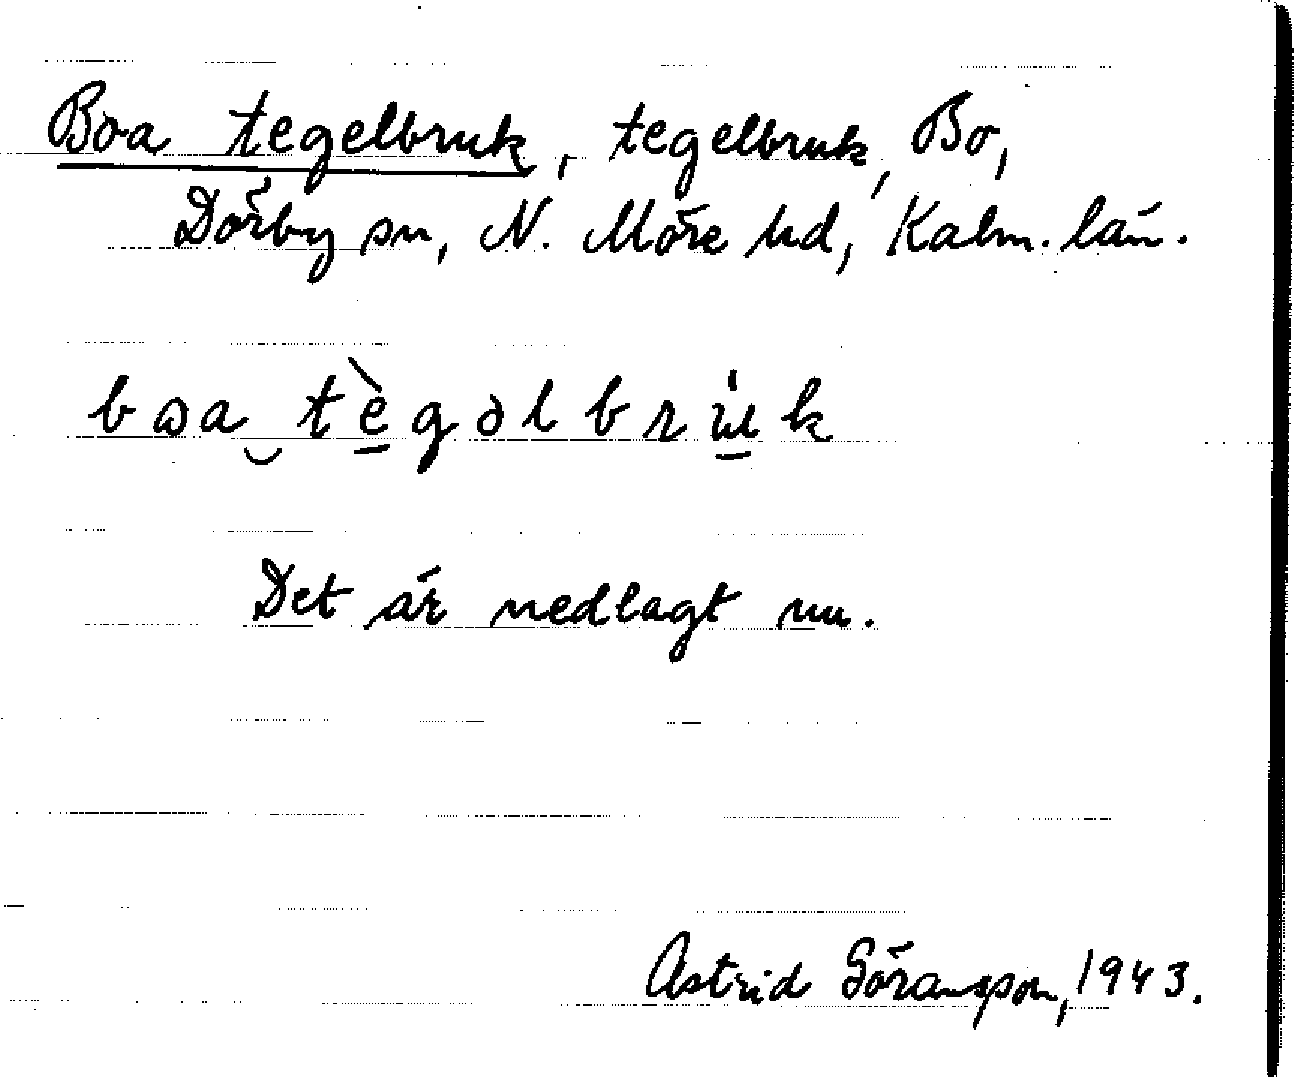 Boa tegelbruk, tegelbruk, Bo,
Dörby sn, N. Möre hd, Kalm. län.
bɷa‿tè̱gəlbru̱̍k
Det är nedlagt nu.
Astrid Göransson, 1943.